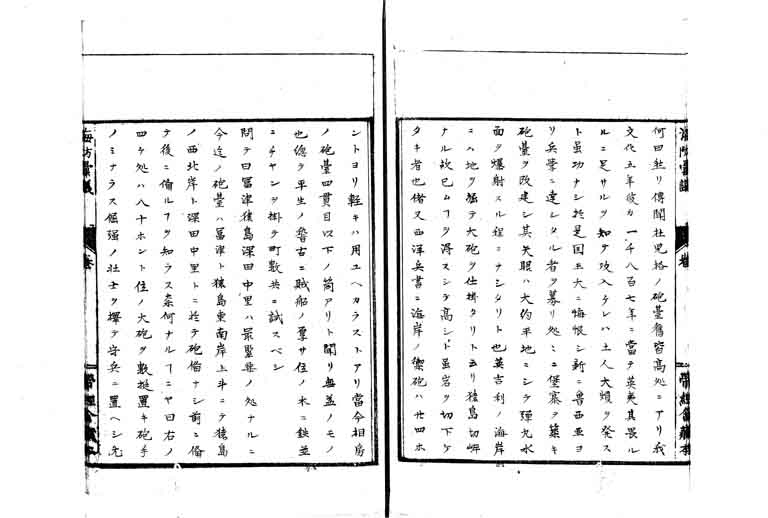 何曰然リ傳聞杜児格ノ砲臺舊皆高処ニアリ我
文化五年彼カ一千八百七年ニ當テ英夷其畏ル
ルニ足サルヲ知テ攻入タレハ土人大煩ヲ発ス
ト虽功ナシ於是国王大ニ悔恨シ新ニ魯西亜ヨ
リ兵學ニ達シタル者ヲ募リ処ニニ堡寨ヲ築キ
砲臺ヲ改建シ其矢眼ハ大約平地ニシテ弾丸水
面ヲ爆射スル程ニナシタリト也英吉利ノ海岸
ニハ地ヲ掘テ大砲ヲ仕掛タリト云リ猿島切岬
ナル故已ムフヲ得スシテ高シト虽岩ヲ切下ケ
タキ者也偖又西洋兵書ニ海岸ノ禦砲ハ廿四ホ
ントヨリ軽キハ用ユヘカラストアリ當今相房
ノ砲臺四貫目以下ノ筒アリト聞リ無益ノモノ
也總テ平生ノ稽古ニ賊船ノ厚サ位ノ木ニ鉄並
ニチヤンヲ掛テ町数共ニ試スベシ
問テ曰冨津猿島深田中里ハ最堅要ノ処ナルニ
今迄ノ砲臺ハ冨津ト猿島東南岸上斗ニテ猿島
ノ西北岸ト深田中里トニ於テ砲備ナシ前ニ備
テ後ニ備ルフヲ知ラス柰何ナルフニヤ曰右ノ
四ケ処ハ八十ホント位ノ大砲ヲ数挺置キ砲手
ノミナラス倔强ノ壮士ヲ擇テ守兵ニ置ヘシ先
海防彙議
巻